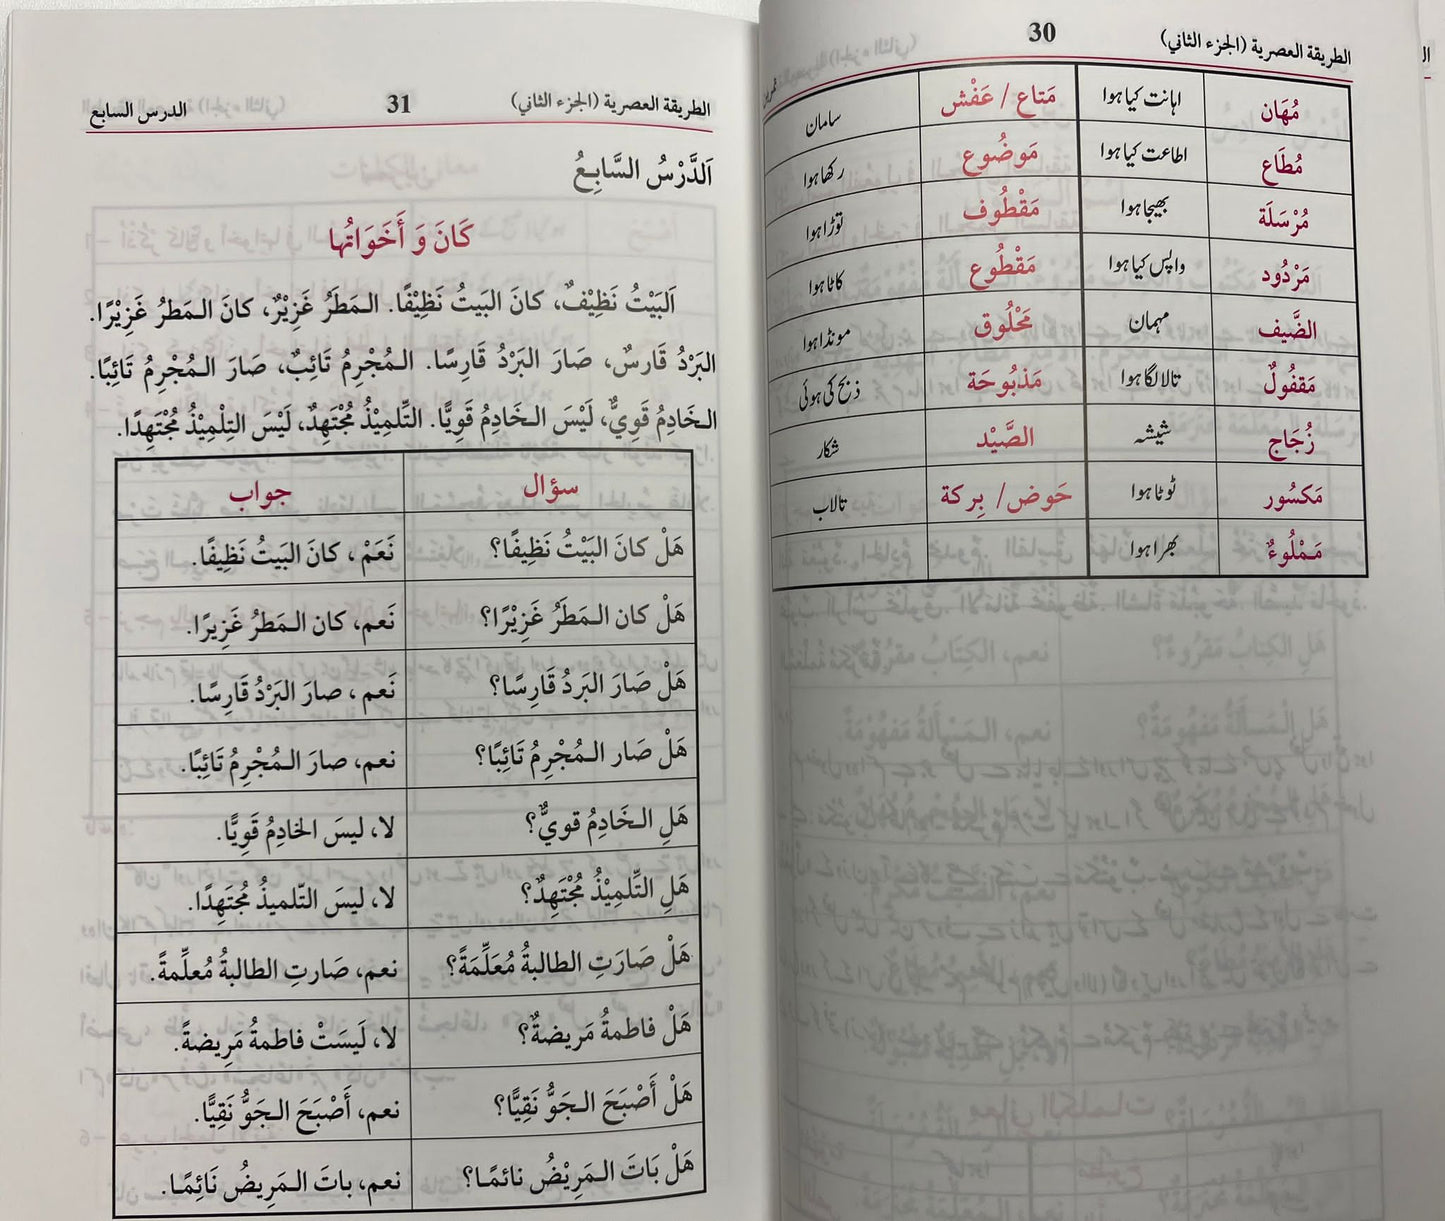 الطريقة العصرية (الجزء الثاني) 30
مُهَان اہانت کیا ہوا مَتاع / عَفْش سامان
مُطَاع اطاعت کیا ہوا مَوضُوع رکھا ہوا
مُرْسَلَة بھیجا ہوا مَقْطُوف توڑا ہوا
مَرْدُود واپس کیا ہوا مَقْطُوع کاٹا ہوا
الضَّيف مہمان مَحْلُوق مونڈا ہوا
مَقفُولٌ تالا لگا ہوا مَذبُوحَة ذبح کی ہوئی
زُجَاج شیشہ الصَّيْد شکار
مَكسُور ٹوٹا ہوا حَوض / بِركة تالاب
مَـمْلُوءٌ بھرا ہوا
الطريقة العصرية (الجزء الثاني) 31 الدرس السابع
اَلدَّرْسُ السَّابِعُ
كَانَ وَ أَخَوَاتُها
اَلبَيْتُ نَظِيفٌ، كانَ البَيتُ نَظِيْفًا. الـمَطَرُ غَزِيْرٌ، كانَ الـمَطرُ غَزِيْرًا.
البَرْدُ قَارسٌ، صَارَ البَرْدُ قَارِسًا. الـمُجْرِمُ تَائِبٌ، صَارَ الـمُجْرِمُ تَائِبًا.
الـخَادِمُ قَوِيٌّ، لَيْسَ الـخَادِمُ قَوِيًّا. التِّلمِيْذُ مُجْتَهِدٌ، لَيْسَ التِلْمِيْذُ مُجْتَهِدًا.
سؤال جواب
هَلْ كانَ البَيْتُ نَظِيفًا؟ نَعَمْ، كانَ البَيتُ نَظِيفًا.
هَلْ كان الـمَطَرُ غَزِيْرًا؟ نَعم، كان الـمَطرُ غَزِيرًا.
هَلْ صَارَ البَردُ قَارِسًا؟ نَعم، صارَ البَرْدُ قَارسًا.
هَلْ صَار الـمُجْرِمُ تَائِبًا؟ نعم، صارَ الـمُجْرِمُ تَائِبًا.
هَلِ الـخَادِمُ قويٌّ؟ لا، ليسَ الخادِمُ قَوِيًّا.
هَلِ التِّلمِيْذُ مُجْتَهِدٌ؟ لا، ليسَ التّلميذُ مُجتَهِدًا.
هَلْ صَارَتِ الطالبةُ مُعَلِّمَةً؟ نعم، صَارتِ الطالبةُ مُعلِّمةً.
هَلْ فاطمةُ مَريضةٌ؟ لا، لَيسَتْ فاطمةُ مَرِيضةً.
هَلْ أَصْبَحَ الـجَوُّ نَقِيًّا؟ نعم، أَصْبَحَ الـجَوُّ نَقِيًّا.
هَلْ بَاتَ الـمَرِيْضُ نائمًـا؟ نعم، باتَ الـمَرِيضُ نَائِمًـا.